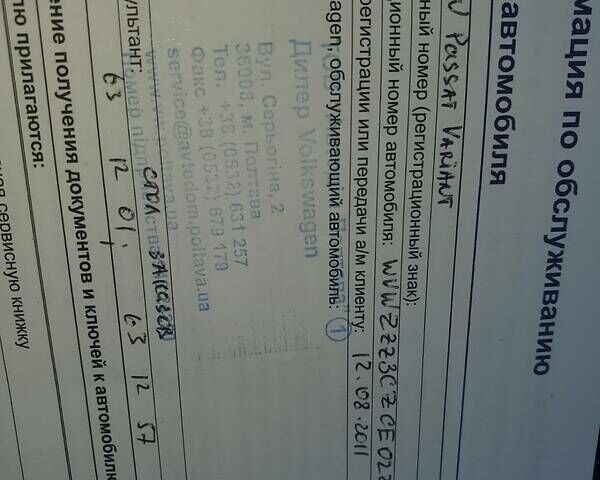 мация по обслуживанию
автомобиля
W PASSAT VARIANT
ный номер (регистрационный знак):
ционный номер автомобиля: WVWZZZ3CZCE022
регистрации или передачи а/м клиенту: 12.08.2011
agen, обслуживающий автомобиль: 1
Дилер Volkswagen
Вул. Серьогіна, 2
36008, м. Полтава
Тел. +38 (0532) 631 257
Факс +38 (0532) 679 179
service@avtodom.poltava.ua
ультант:
СТОЛ ЗАКАЗОВ
63 12 01, 63 12 57
ение получения документов и ключей к автомобилю
лю прилагаются:
сервисную книжку